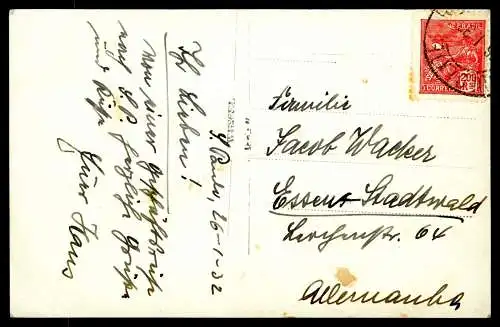 S. Paulo, 26-1-32
Ihr Lieben!
Von einer Geschäftsreise
nach S.P. herzliche Grüße
und Küsse
Euer Hans
Familie
Jacob Wacker
Essen-Stadtwald
Lerchenstr. 64
Allemanha
BRASIL
CORREIO